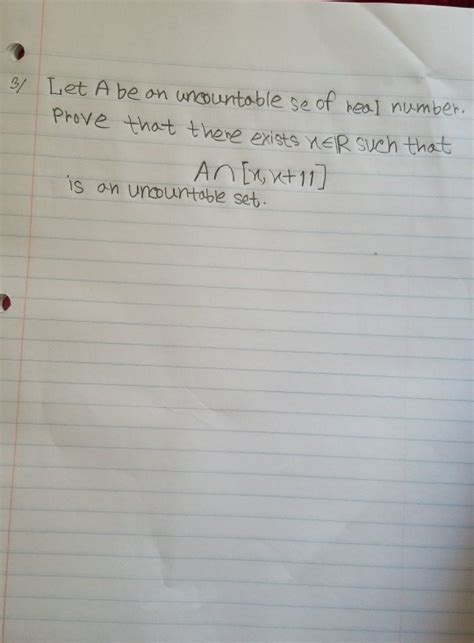 3/ Let A be an uncountable se of real number.
Prove that there exists x∈R such that
A∩[x,x+11]
is an uncountable set.